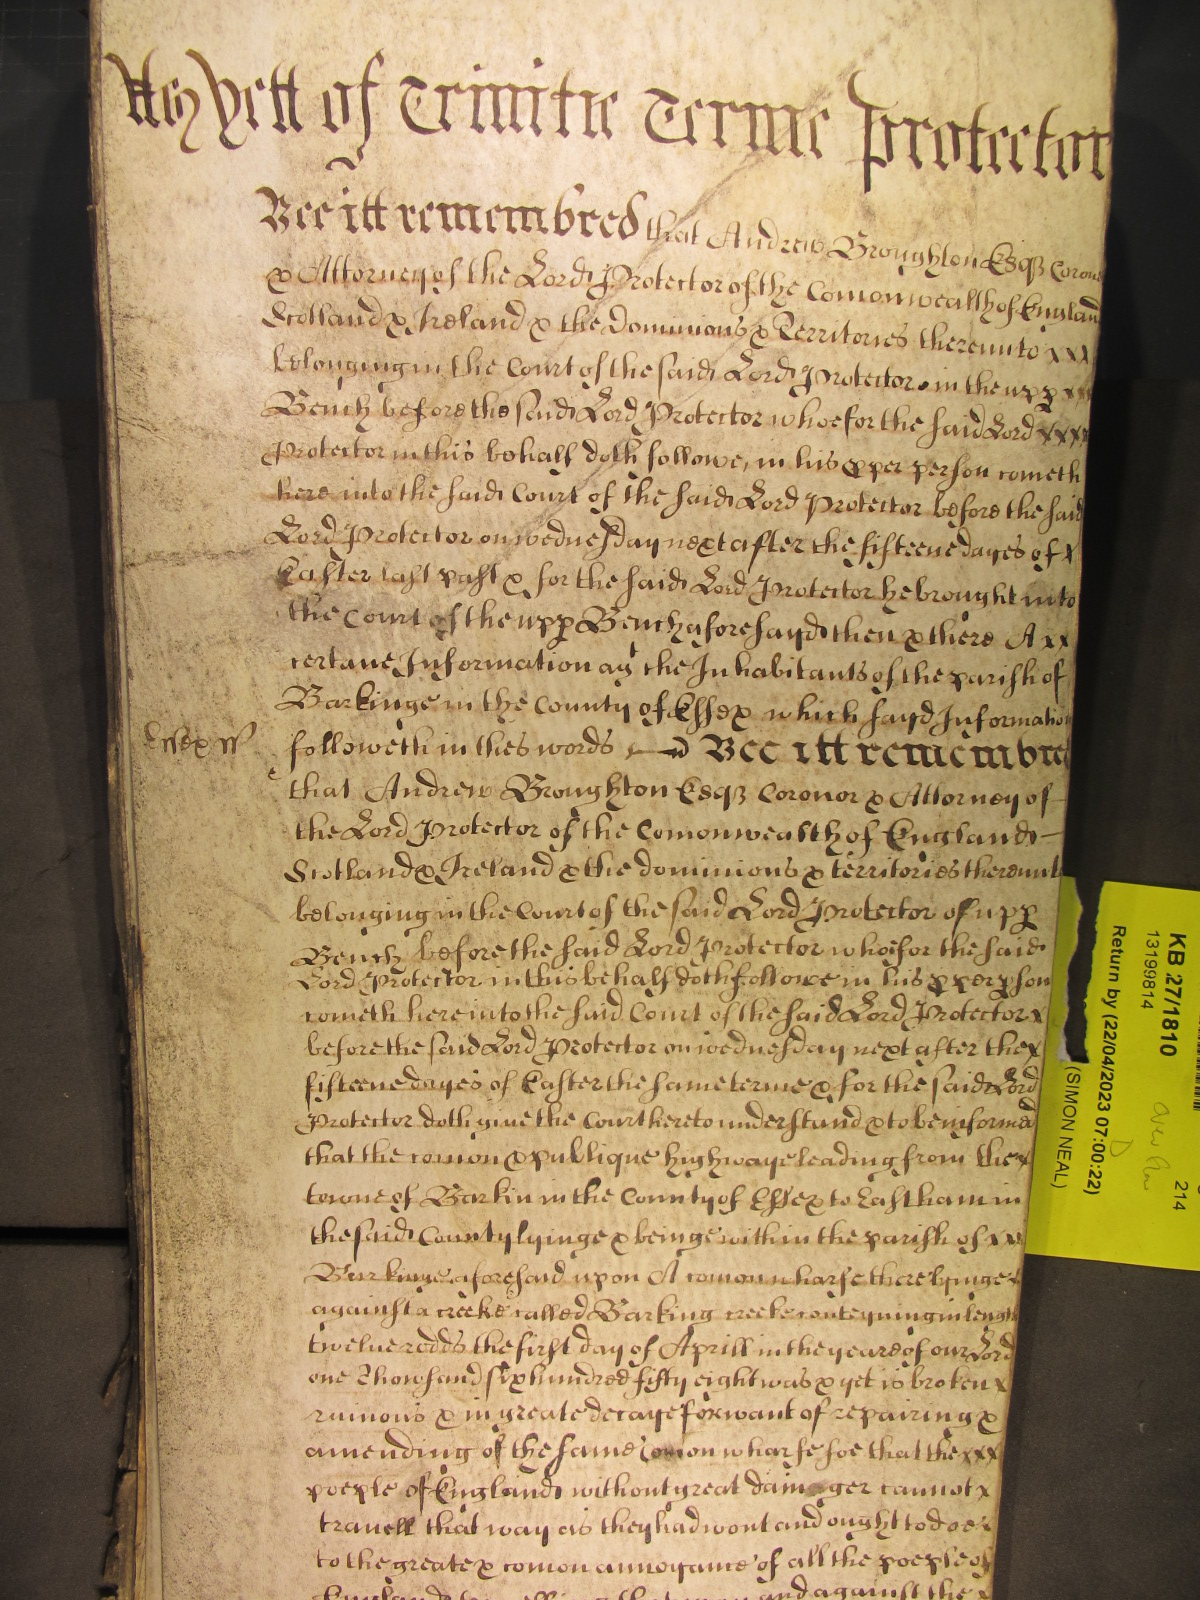 Yett of Trinitie Terme Protector
Bee itt remembred that Andrew Broughton Esqȝ Coron
& Attorney of the Lord Protector of the Comonwealth of England
Scotland & Ireland & the dominions & Territories thereunto xxx
belonging in the Court of the said Lord Protector in the upp xxx
Bench before the said Lord Protector whoe for the said Lord xxxx
Protector in this behalf doth followe, in his pper person cometh
here into the said Court of the said Lord Protector before the said
Lord Protector on wednesday next after the fifteene dayes of x
Easter last past & for the said Lord Protector he brought into
the Court of the upp Bench aforesayd then & there A xx
certane Information ag the Inhabitants of the parish of
Barkinge in the County of Essex which sayd Informatio
Essex ss
followeth in thes words Bee itt remembre
that Andrew Broughton Esqȝ Coronor & Attorney of
the Lord Protector of the Comonwealth of England
Scotland & Ireland & the dominions & territories thereunt
belonging in the Court of the said Lord Protector of upp
Bench before the said Lord Protector whoe for the said
Lord Protector in this behalf doth followe in his pper pson
cometh here into the said Court of the said Lord Protector x
before the said Lord Protector on wednesday next after the x
fifteene dayes of Easter the same terme & for the said Lord
Protector doth give the Court here to understand & to be informed
that the comon & publique highwaye leading from the x
towne of Barkin in the County of Essex to Eastham in
the said County lyinge & beinge within the parish of xx
Barkinge aforesaid upon A comon wharfe there lyinge
against a creeke called Barking creeke conteyning in length
twelve rodds the first day of Aprill in the yeare of our Lord
one Thowsand six hundred fifty eight was & yet is broken x
ruinous & in greate decaye for want of repairing &
amending of the same Comon wharfe soe that the xxx
poeple of England without great dainger cannot x
travell that way as they had wont and ought to doe
to the greate & comon annoyance of all the poeple of
England and against the
KB 27/1810
13199814
Return by (22/04/2023 07:00:22)
(SIMON NEAL)
214